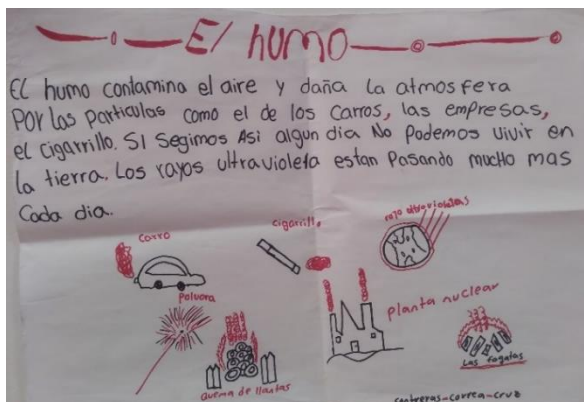 El humo
El humo contamina el aire y daña la atmosfera
Por las particulas como el de los carros, las empresas,
el cigarrillo. Si segimos Asi algun dia No Podemos vivir en
la tierra. Los rayos ultravioleta estan Pasando mucho mas
Cada dia.
carro
cigarrillo
rayo ultravioletas
Polvora
planta nuclear
quema de llantas
Las fogatas
contreras-correa-cruz